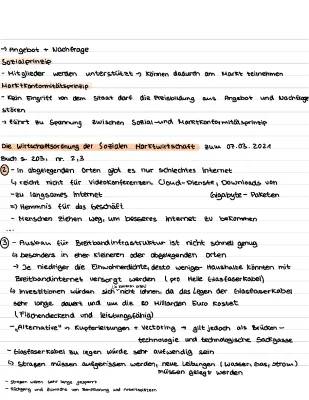 → Angebot + Nachfrage
Sozialprinzip
- Mitglieder werden unterstützt → können dadurch am Markt teilnehmen
Marktkonformitätsprinzip
- Kein Eingriff von dem Staat darf die Preisbildung aus Angebot und Nachfrage
stören
→ führt zu Spannung zwischen Sozial- und Marktkonformitätsprinzip
Die Wirtschaftsordnung der Sozialen Marktwirtschaft zum 07.03.2021
Buch s. 203, nr. 2,3
② - In abgelegenden Orten gibt es nur schlechtes Internet
↳ reicht nicht für Videokonferenzen, Cloud-Dienste, Downloads von
- zu langsames Internet Gigabyte-Paketen
⇒ Hemmnis für das Geschäft
- Menschen ziehen weg, um besseres Internet zu bekommen
...
③ - Ausbau für Breitbandinfrastruktur ist nicht schnell genug
↳ besonders in eher kleineren oder abgelegenden Orten
→ Je niedriger die Einwohnerdichte, desto weniger Haushalte könnten mit
Breitbandinternet versorgt werden (pro Meile Glasfaserkabel)
↳ Investitionen würden sich nicht lohnen, da das legen der Glasfaserkabel
sehr lange dauert und um die 80 Milliarden Euro kostet
(Flächendeckend und leistungsfähig)
- "Alternative" → Kupferleitungen + Vectoring → gilt jedoch als Brücken-
technologie und technologische Sackgasse
- Glasfaserkabel zu legen würde sehr aufwendig sein
↳ Straßen müssen aufgerissen werden, neue Leitungen (Wasser, Gas, Strom)
müssen gelegt werden
- Straßen wären sehr lange gesperrt
- Rückgang und